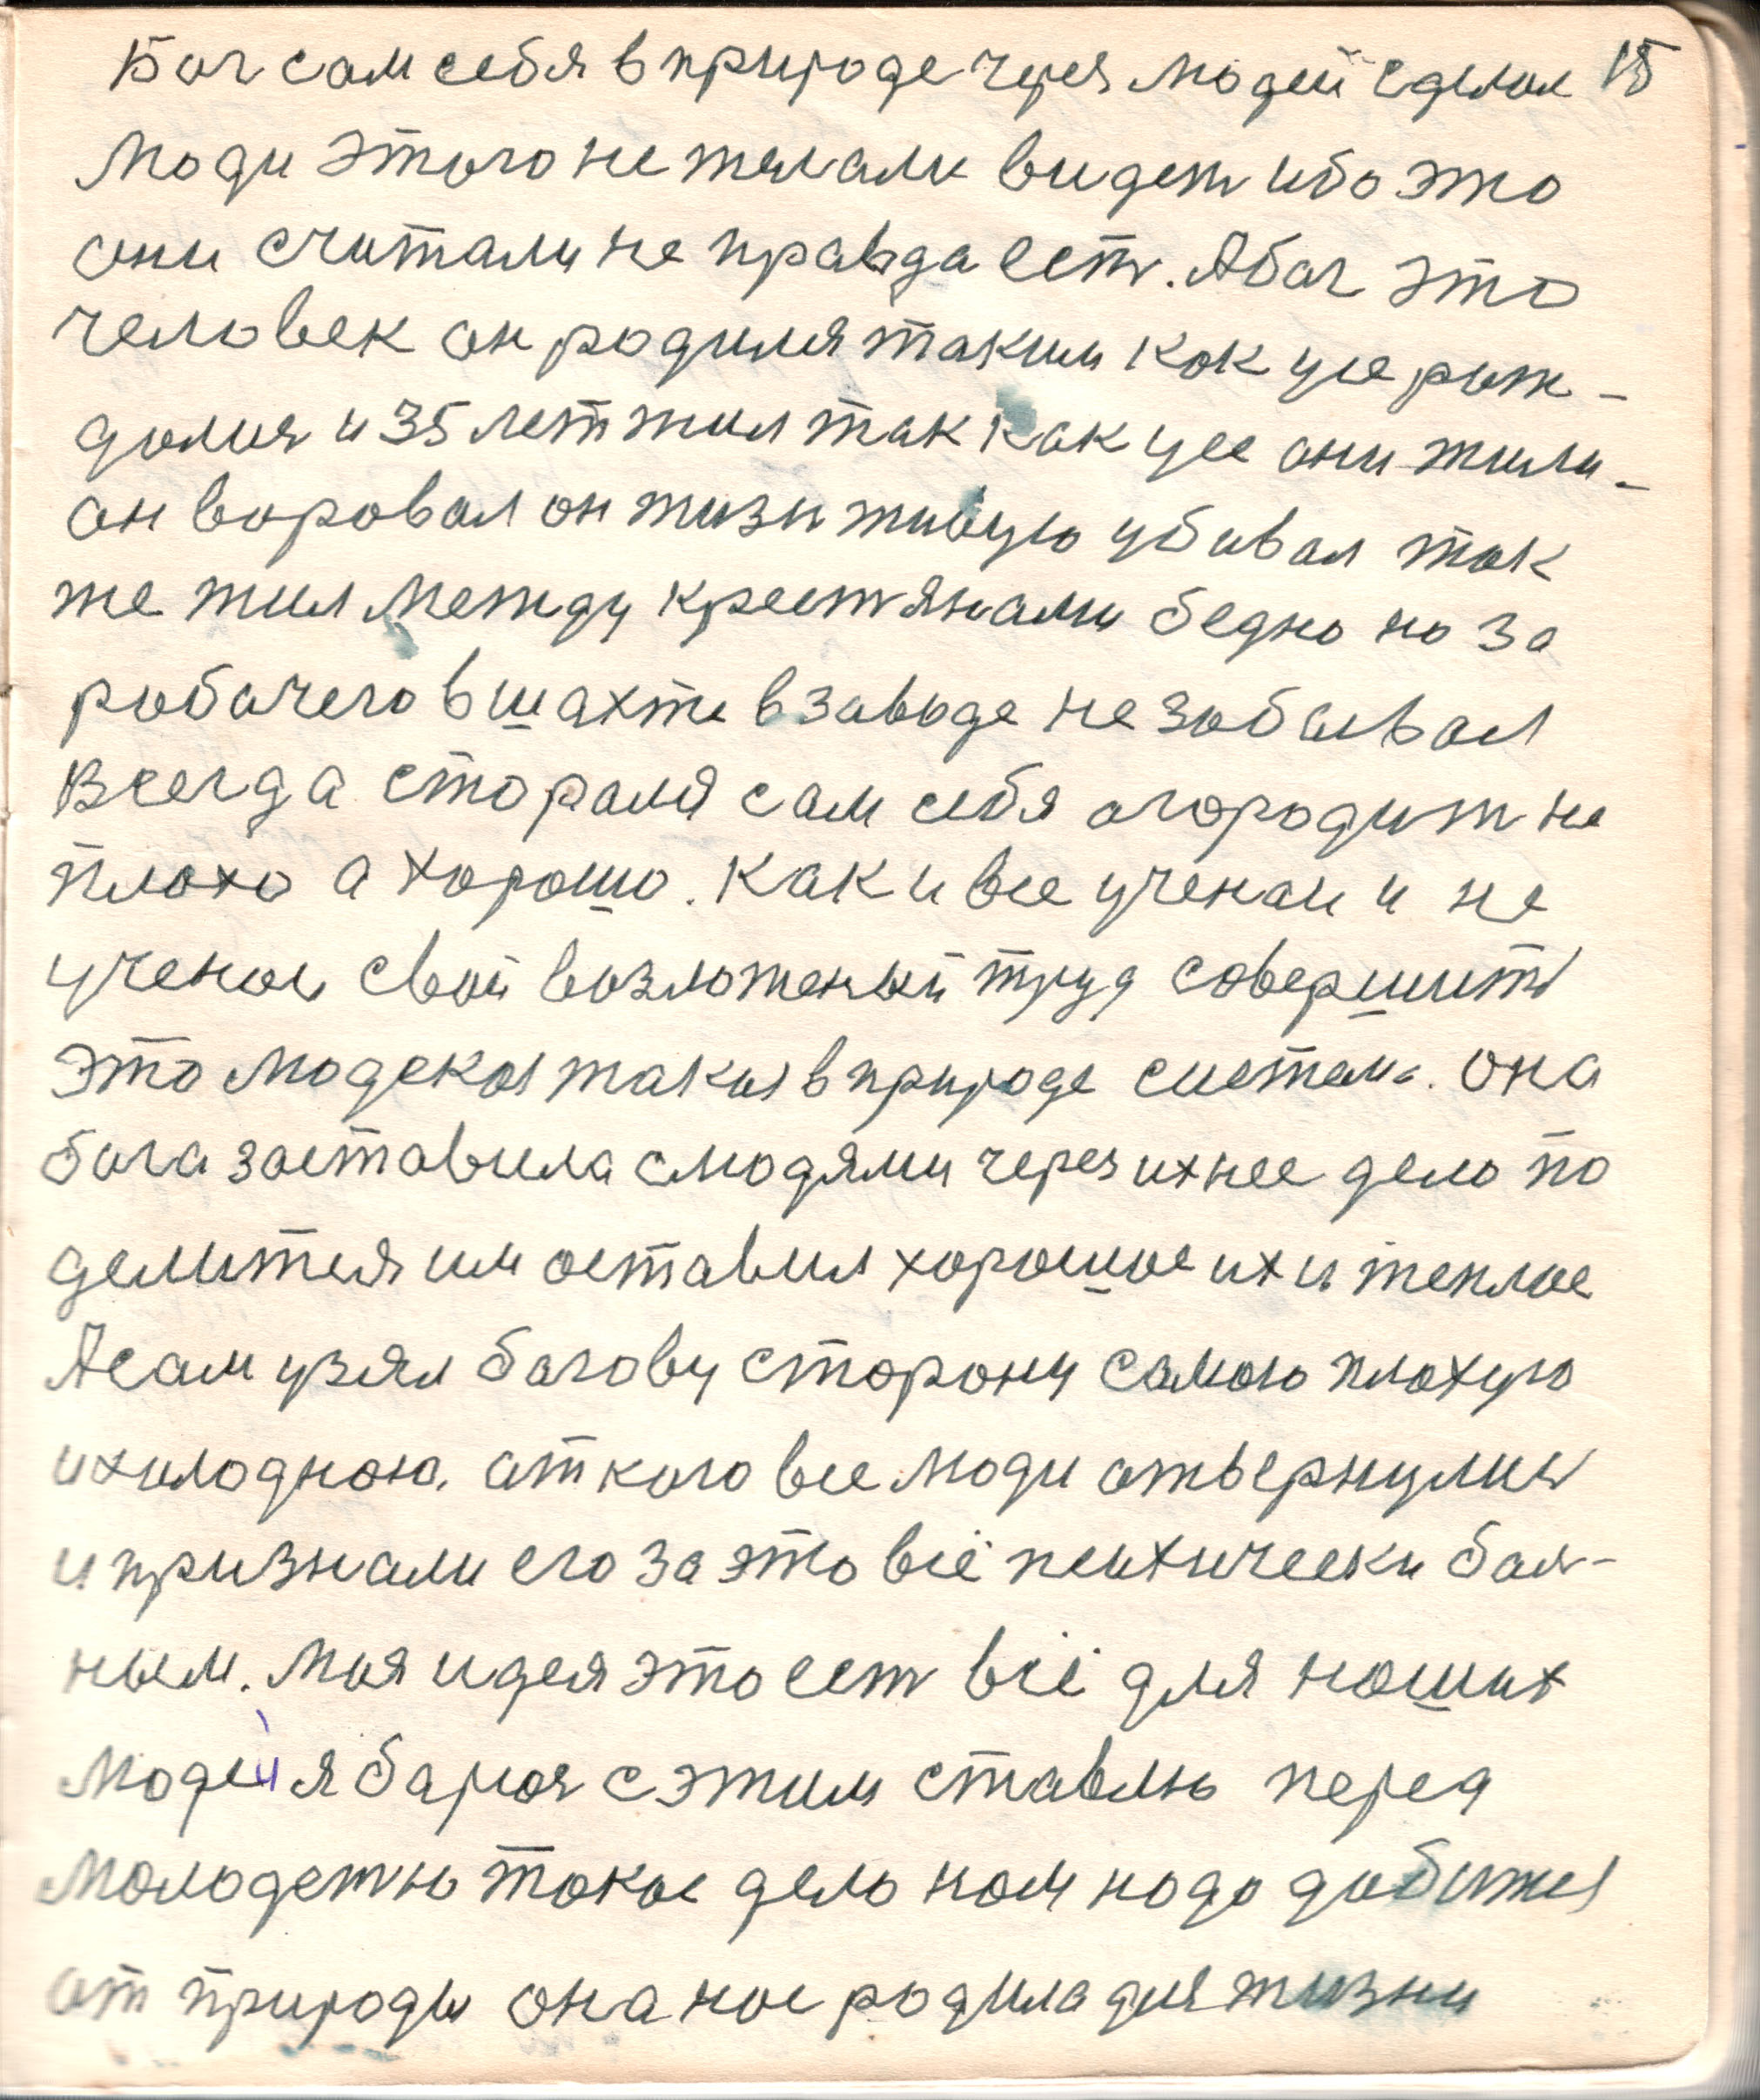 Бог сам себя в природе через людей сделал 15
Люди этого не желали видет ибо это
они считали не правда ест. А бог это
человек он родился таким как усе рож-
дались и 35 лет жил так как усе они жили -
он воровал он жизн живую убивал так
же жил между крестянами бедно но за
робочего в шахте в заводе не забывал
Всегда старался сам себя огородит не
плохо а хорошо. Как и все ученаи и не
ученои свой возложеный труд совершить
это людская такая в природе систем. она
бога заставила с людями через ихнее дело по
делится им оставил хорошое их и теплое
А сам узял богову сторону самою плохую
и холодною. от кого все люди отвернулись
и признали его за это всё психически бол-
ным. Моя идея это ест всё для наших
людей я борюся с этим ставлю перед
молодежю такое дело нам надо добится
от природы она нас родила для жизни